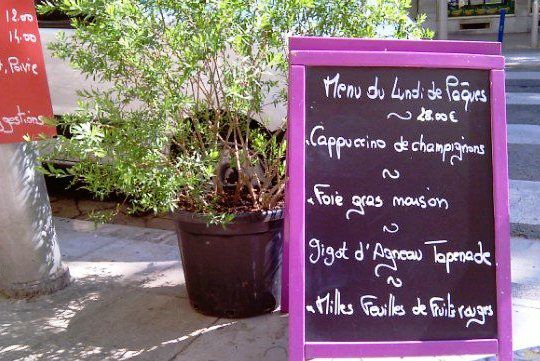 12.00
14.00
Poivre
gestions
Menu du Lundi de Pâques
~ 28.00 €
.Cappuccino de champignons
~
.Foie gras maison
~
.Gigot d'Agneau Tapenade.
~
.Milles Feuilles de Fruits rouges